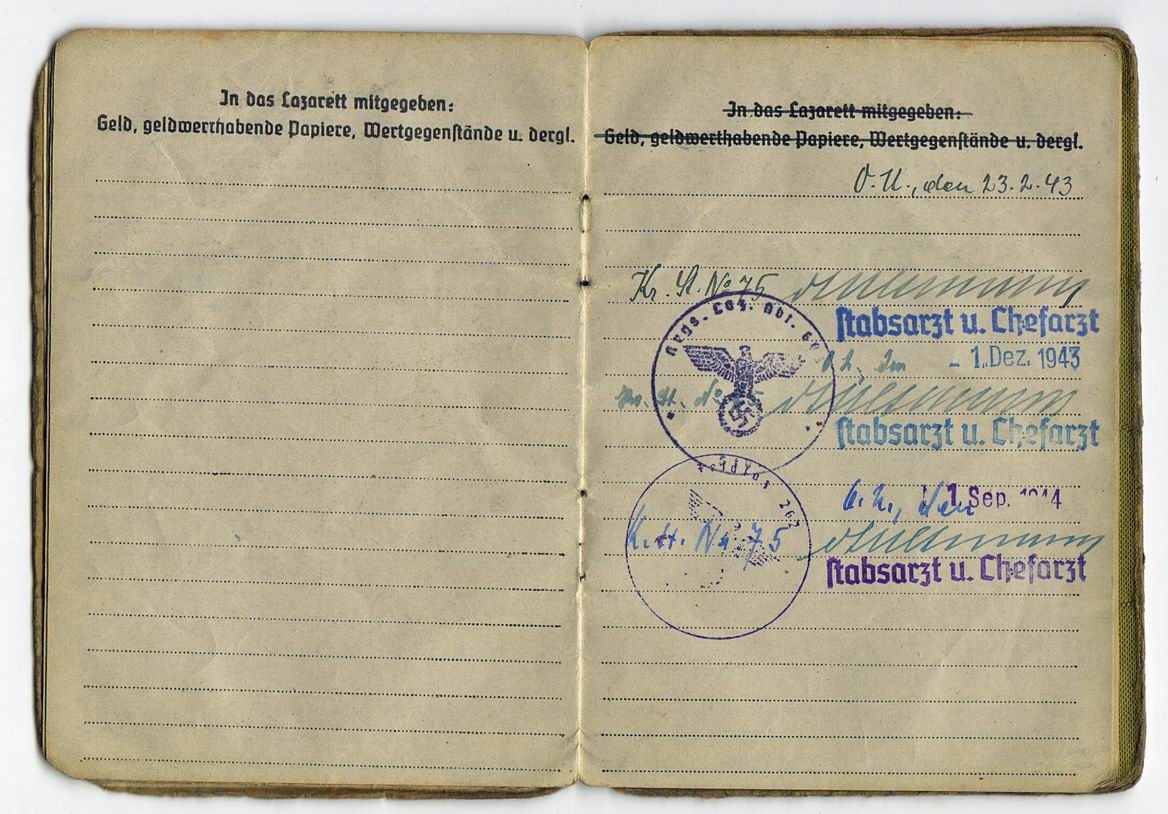 In das Lazarett mitgegeben:
Geld, geldwerthabende Papiere, Wertgegenstände u. dergl.
In das Lazarett mitgegeben:
Geld, geldwerthabende Papiere, Wertgegenstände u. dergl.
O.U., den 23.2.43
Kr. St. No 75
Krgs. Laz. Abt.
Stabsarzt u. Chefarzt
- 1. Dez. 1943
Stabsarzt u. Chefarzt
1. Sep. 1944
No 75
Stabsarzt u. Chefarzt